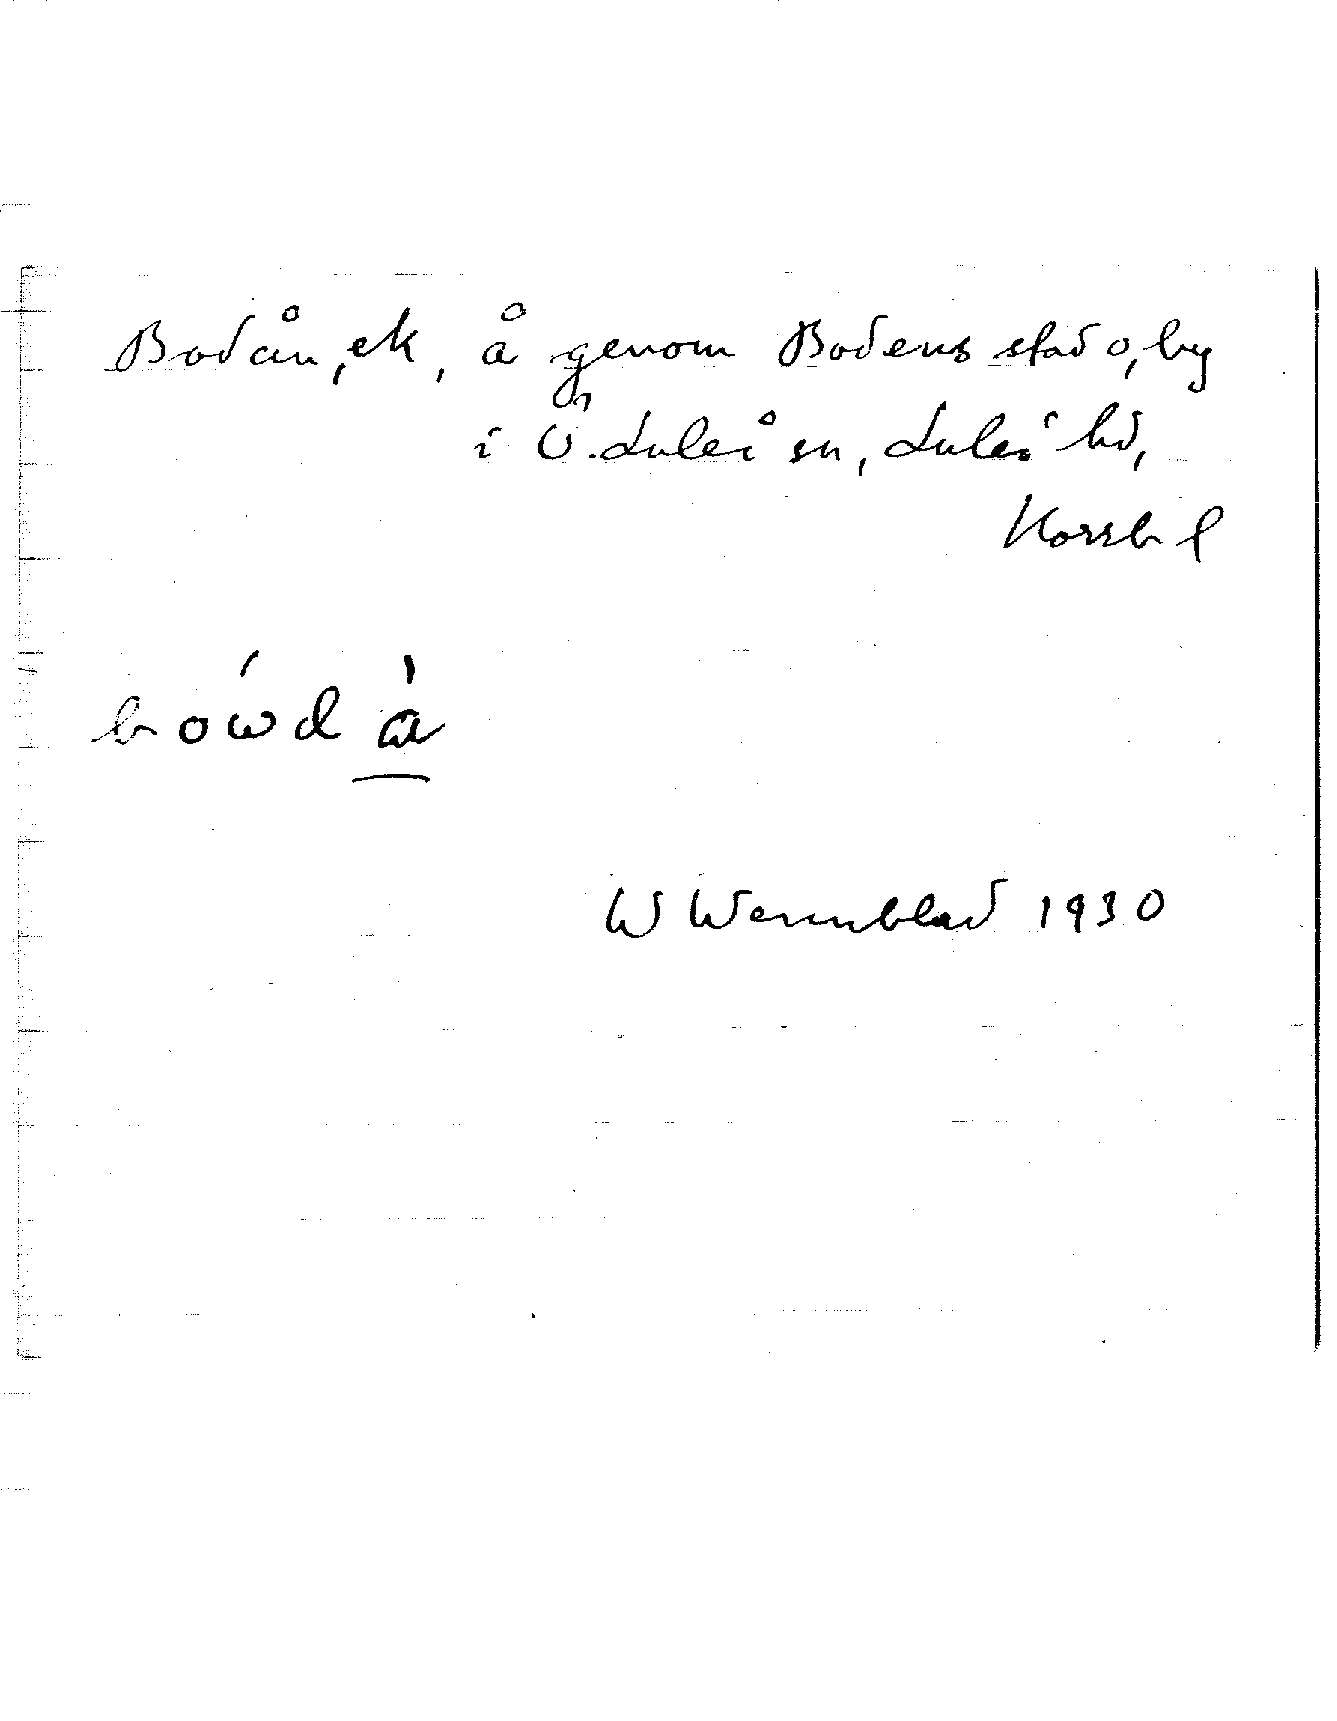 Bodån, ek, å genom Bodens stad o, by
i Ö. Luleå sn, Luleå hd,
Norrb l
bówdà
W Wennblad 1930